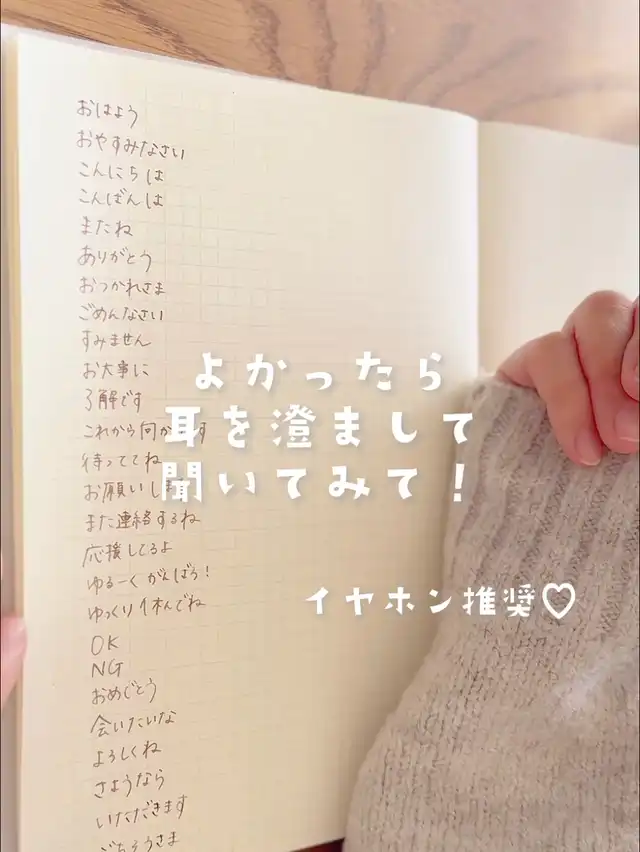 おはよう
おやすみなさい
こんにちは
こんばんは
またね
ありがとう
おつかれさま
ごめんなさい
すみません
お大事に
了解です
これから向か す
待っててね
お願いし
また連絡するね
応援してるよ
ゆるーくがんばろう!
ゆっくり休んでね
OK
NG
おめでとう
会いたいな
よろしくね
さようなら
いただきます
ごちそうさま
よかったら
耳を澄まして
聞いてみて!
イヤホン推奨♡